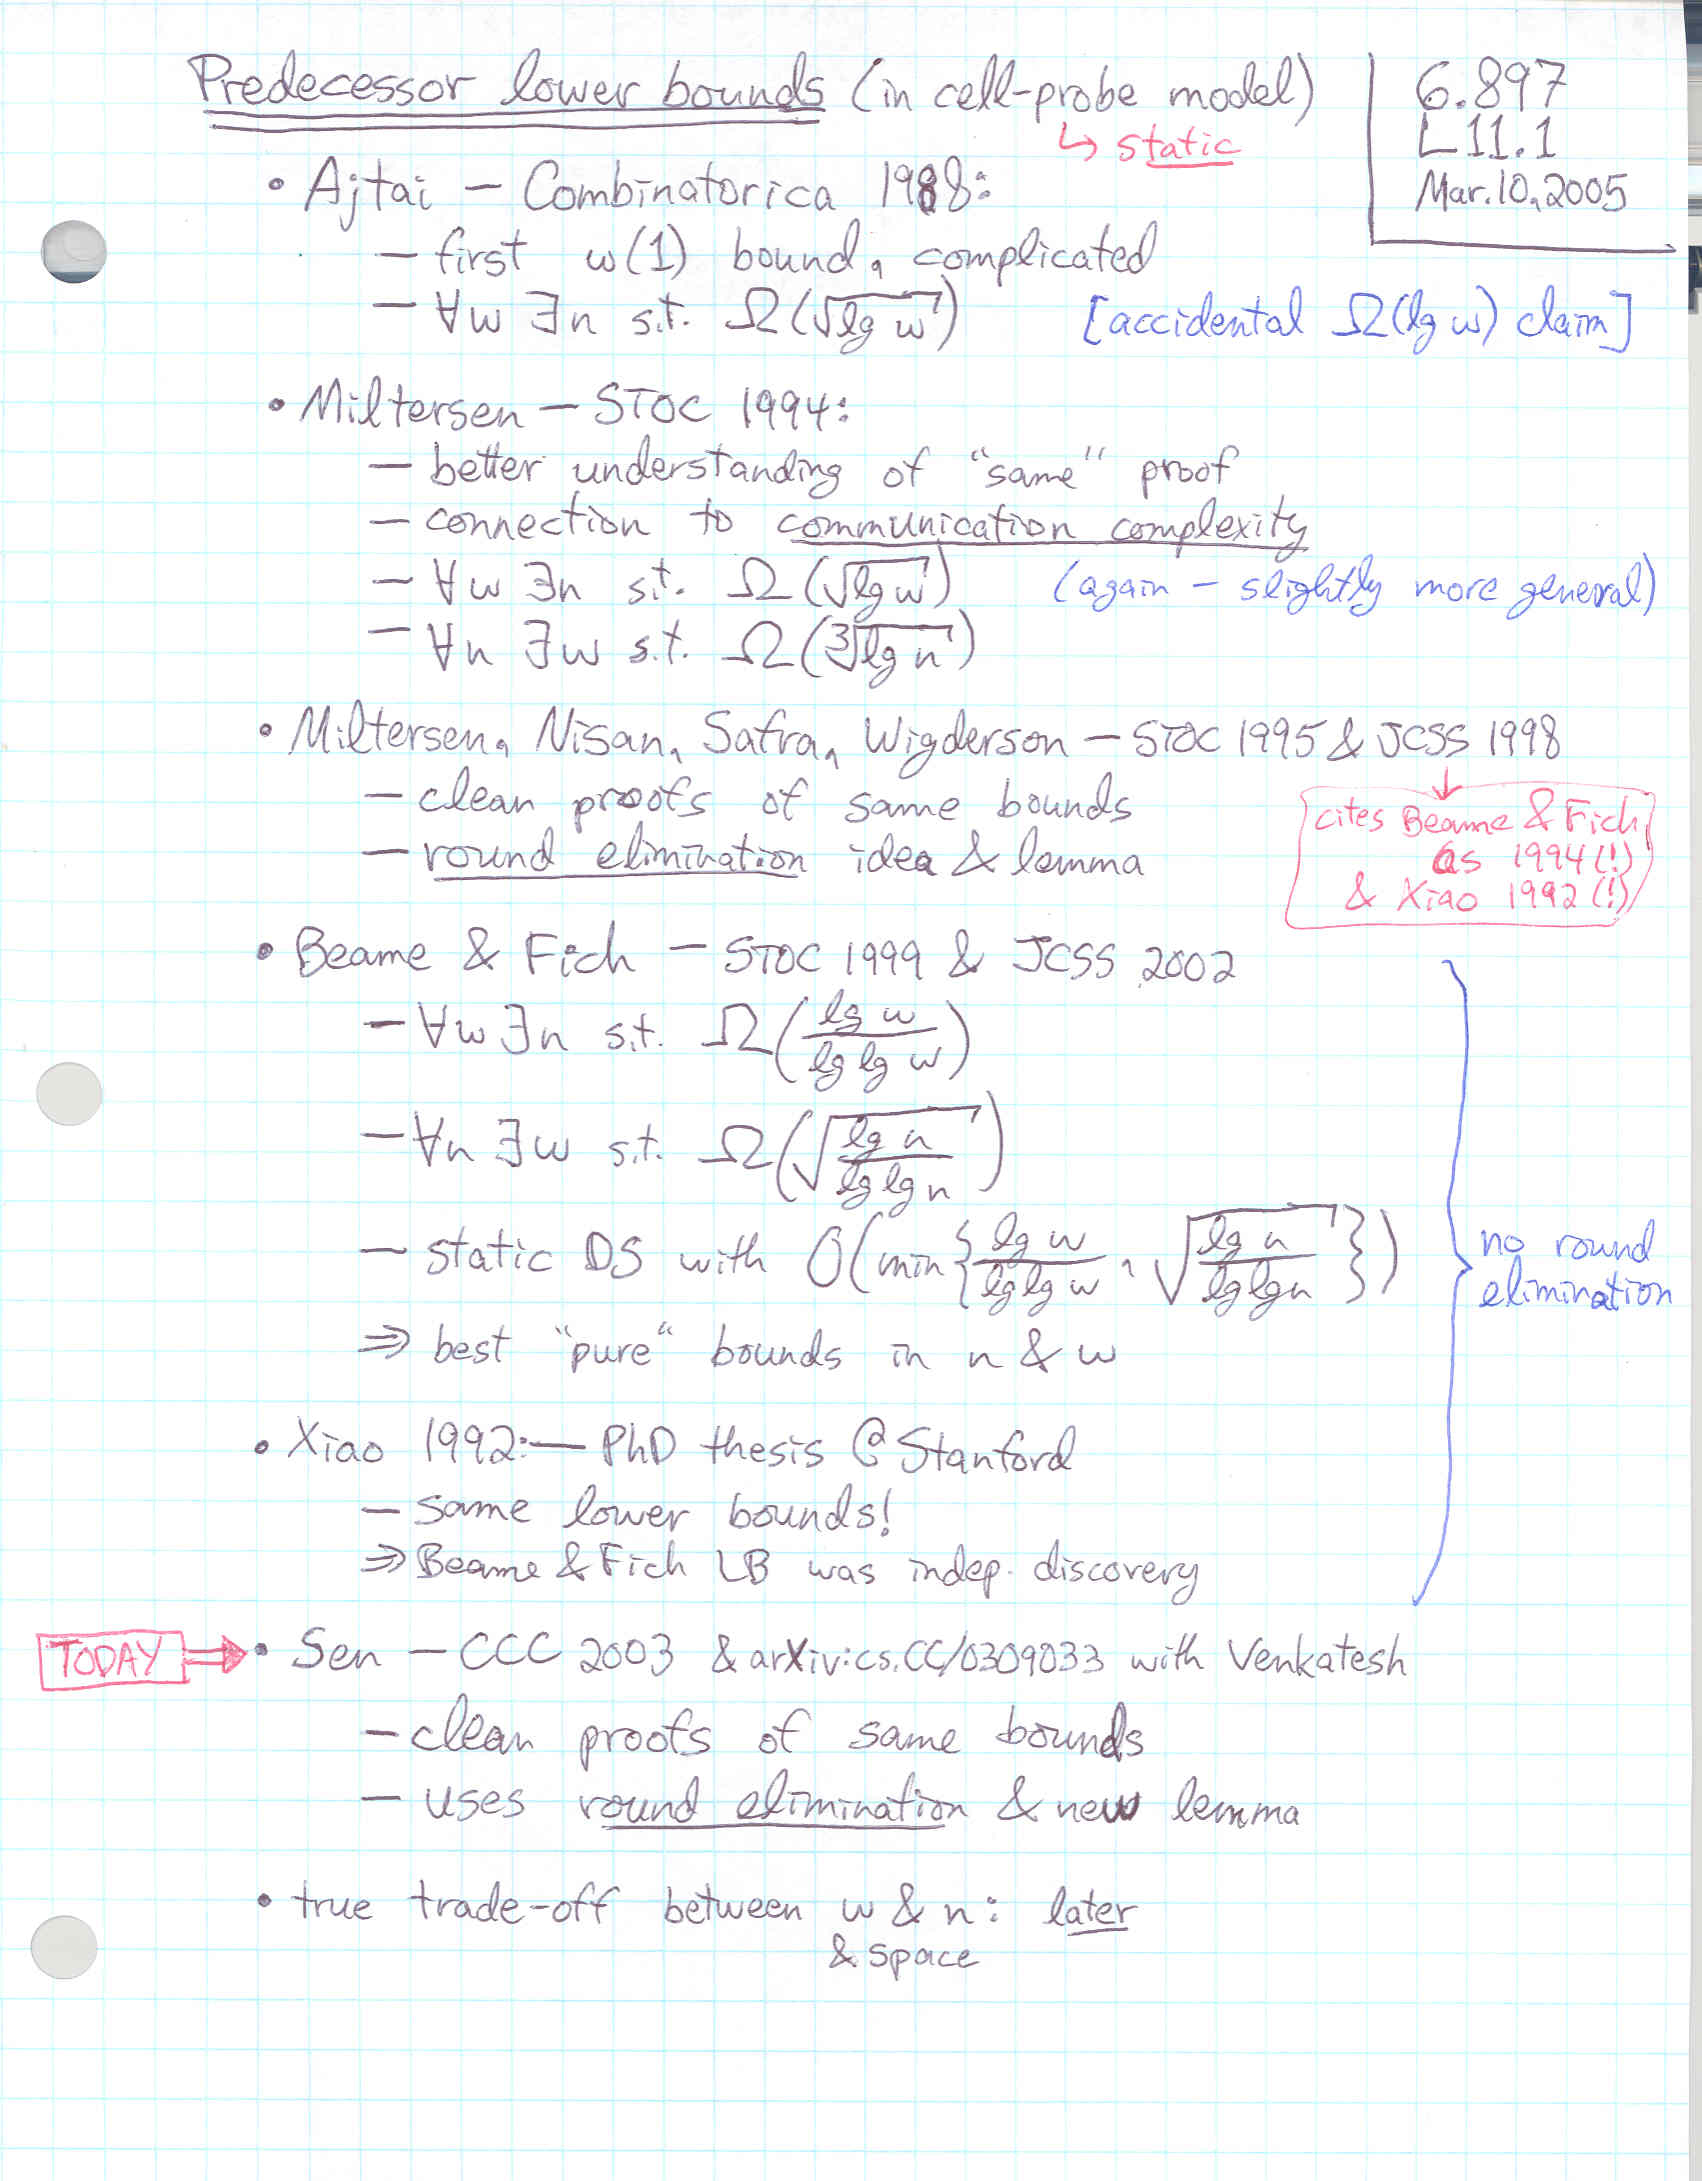 Predecessor lower bounds (in cell-probe model)
↳ static
6.897
L11.1
Mar. 10, 2005
• Ajtai – Combinatorica 1988:
– first ω(1) bound, complicated
– ∀w ∃n s.t. Ω(√lg w) [accidental Ω(lg w) claim]
• Miltersen – STOC 1994:
– better understanding of "same" proof
– connection to communication complexity
– ∀w ∃n s.t. Ω(√lg w) (again – slightly more general)
– ∀n ∃w s.t. Ω(∛lg n)
• Miltersen, Nisan, Safra, Wigderson – STOC 1995 & JCSS 1998
– clean proofs of same bounds
– round elimination idea & lemma
↓
cites Beame & Fich
as 1994(!)
& Xiao 1992(!)
• Beame & Fich – STOC 1999 & JCSS 2002
– ∀w ∃n s.t. Ω(lg w / lg lg w)
– ∀n ∃w s.t. Ω(√(lg n / lg lg n))
– static DS with O(min{lg w / lg lg w, √(lg n / lg lg n)})
⇒ best "pure" bounds in n & w
• Xiao 1992:– PhD thesis @ Stanford
– same lower bounds!
⇒ Beame & Fich LB was indep. discovery
} no round
elimination
TODAY ⇒ • Sen – CCC 2003 & arXiv:cs.CC/0309033 with Venkatesh
– clean proofs of same bounds
– uses round elimination & new lemma
• true trade-off between w & n: later
& space